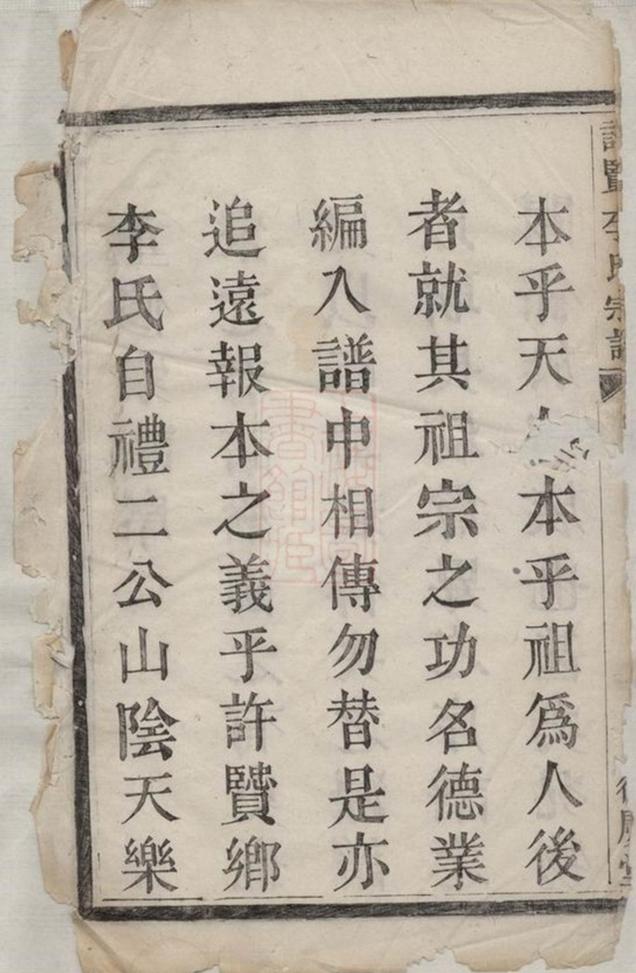 本乎天人本乎祖爲人後
者就其祖宗之功名德業
編入譜中相傳勿替是亦
追遠報本之義乎許賢鄉
李氏自禮二公山陰天樂
許賢李氏宗譜